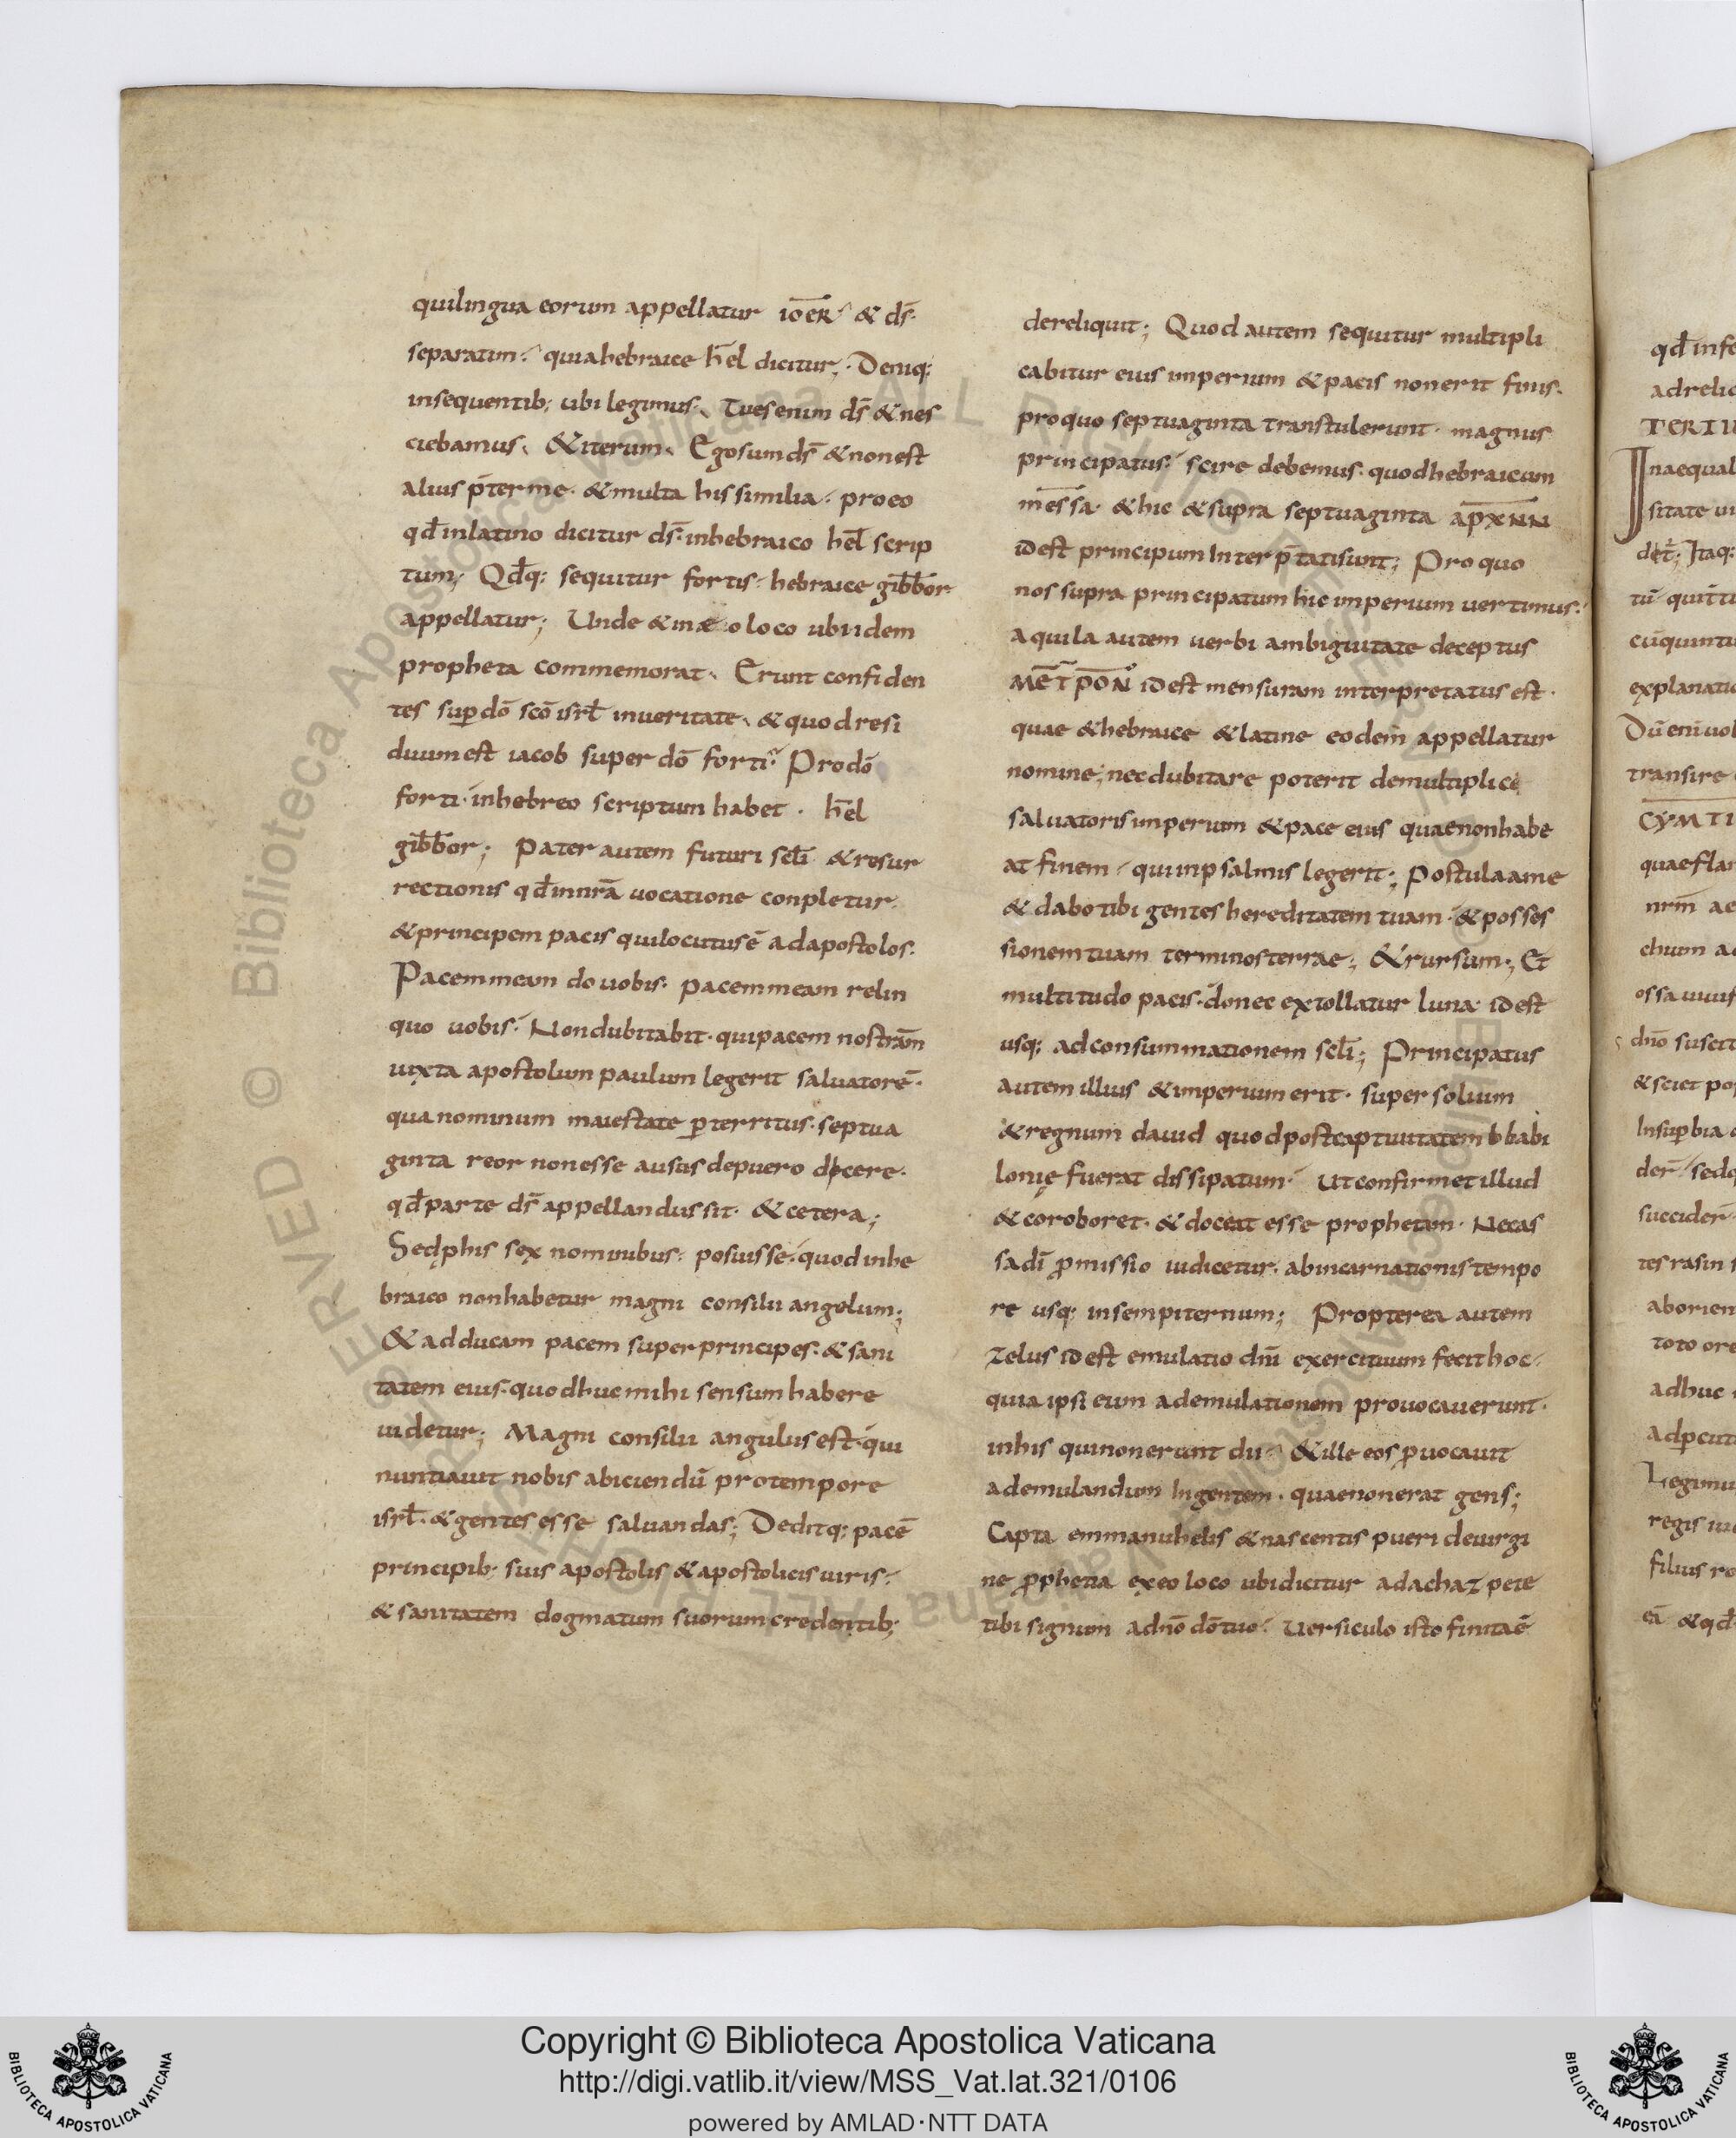 quilingua eorum appellatur ioer & ds̄·
separatim· quia hebraice hel dicitur; Deniq:
insequentib; ubi legimus· Tu es enim ds̄ & nes
ciebamus· & iterum· Ego sum ds̄ & non est
alius p̄ter me· & multa his similia· pro eo
qđ in latino dicitur ds̄· in hebraico hel scrip
tum; Qđq: sequitur fortis· hebraice gibbor
appellatur; Unde & in æo loco ubi idem
propheta commemorat· Erunt confiden
tes sup dō scō isrł in ueritate· & quod resi
duum est iacob super dō forti· Pro dō
forti· in hebreo scriptum habet · hel
gibbor; Pater autem futuri scłi & resur
rectionis qđ in nrā uocatione conpletur·
& principem pacis qui locutus ē ad apostolos·
Pacem meam do uobis· pacem meam relin
quo uobis· Non dubitabit· qui pacem nostram
iuxta apostolum paulum legerit saluatorē·
qua nominum maiestate pterritus· septua
ginta reor non esse ausus de puero dicere·
qđ parte ds̄ appellandus sit· & cetera;
Sed p his sex nominibus· posuisse· quod in he
braico non habetur magni consilii angelum;
& adducam pacem super principes· & sani
tatem eius· quod huc mihi sensum habere
uidetur; Magni consilii angulus est· qui
nuntiauit nobis abiciendū pro tempore
isrł· & gentes esse saluandas; Deditq: pacē
principib; suis apostolis & apostolicis uiris·
& sanitatem dogmatum suorum credentib;
dereliquit; Quod autem sequitur multipli
cabitur eius imperium & pacis non erit finis·
pro quo septuaginta transtulerunt· magnus
principatus· scire debemus· quod hebraicum
messa· & hic & supra septuaginta apxnn
id est principum interp̄tati sunt; Pro quo
nos supra principatum hic imperium uertimus·
aquila autem uerbi ambiguitate deceptus
ΜΕΤΡΟΝ id est mensuram interpretatus est·
quae & hebraice & latine eodem appellatur
nomine; nec dubitare poterit de multiplice
saluatoris imperium & pace eius quae non habe
at finem· qui in psalmis legerit; Postula a me
& dabo tibi gentes hereditatem tuam· & posses
sionem tuam terminos terrae; & rursum; Et
multitudo pacis· donec extollatur luna· id est
usq: ad consummationem scłi; Principatus
autem illius & imperium erit· super solium
& regnum dauid quod post captiuitatem babi
lonię fuerat dissipatum· Ut confirmet illud
& coroboret· & doceat esse prophetam· Ne cas
sa dī pmissio iudicetur· ab incarnationis tempo
re usq: in sempiternum; Propterea autem
zelus id est emulatio dnī exercituum fecit hoc·
quia ipsi eum ad emulationem prouocauerunt·
in his qui non erunt dii· & ille eos puocauit
ad emulandum In gentem· quae non erat gens;
Capta emmanuhelis & nascentis pueri de uirgi
ne pphetia ex eo loco ubi dicitur ad achaz pete
tibi signum a dnō dō tuo· Uersiculo isto finita ē
qđ infe
ad relic
TERTIU
Inaequal
sitate
Itaq:
explanatio
transire
quae flar
nrm ae
chum a
dnō suscit
Insupbia
der· sed
succider
tes rasin
aborien
toto ore
adhuc
Legimu
regis iu
filius ro
eā & qđ
Copyright © Biblioteca Apostolica Vaticana
http://digi.vatlib.it/view/MSS_Vat.lat.321/0106
powered by AMLAD·NTT DATA
BIBLIOTECA APOSTOLICA VATICANA
BIBLIOTECA APOSTOLICA VATICANA